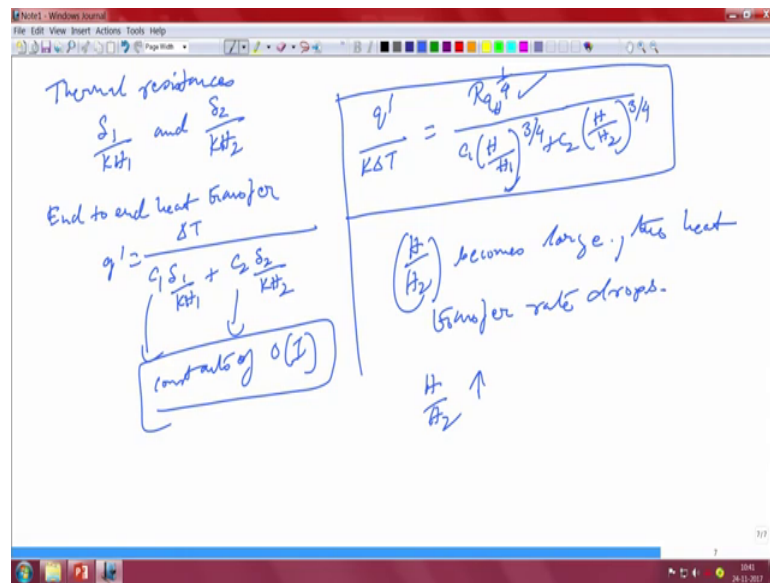 Note1 - Windows Journal
File Edit View Insert Actions Tools Help
Page Width
Thermal resistances
δ1/KH1 and δ2/KH2
End to end heat transfer
q' = ΔT / (C1 δ1/KH1 + C2 δ2/KH2)
constants of O(1)
q'/KΔT = Ra_H^1/4 / (C1 (H/H1)^3/4 + C2 (H/H2)^3/4)
(H/H2) becomes large., the heat
transfer rate drops.
H/H2 ↑
7/7
7
10:41
24-11-2017